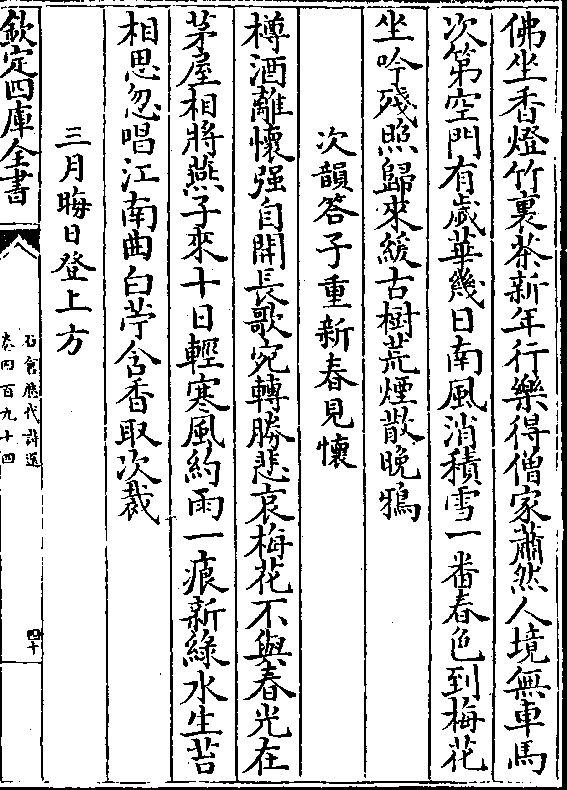 佛坐香燈竹裏茶新年行樂得僧家蕭然人境無車馬
次第空門有歲華幾日南風消積雪一番春色到梅花
坐吟殘照歸來緩古樹荒煙散晚鴉
次韻答子重新春見懷
樽酒離懷强自開長歌宛轉勝悲哀梅花不與春光在
茅屋相將燕子來十日輕寒風約雨一痕新綠水生苔
相思忽唱江南曲白苧含香取次裁
三月晦日登上方
欽定四庫全書
石倉歷代詩選
卷四百九十四
四十